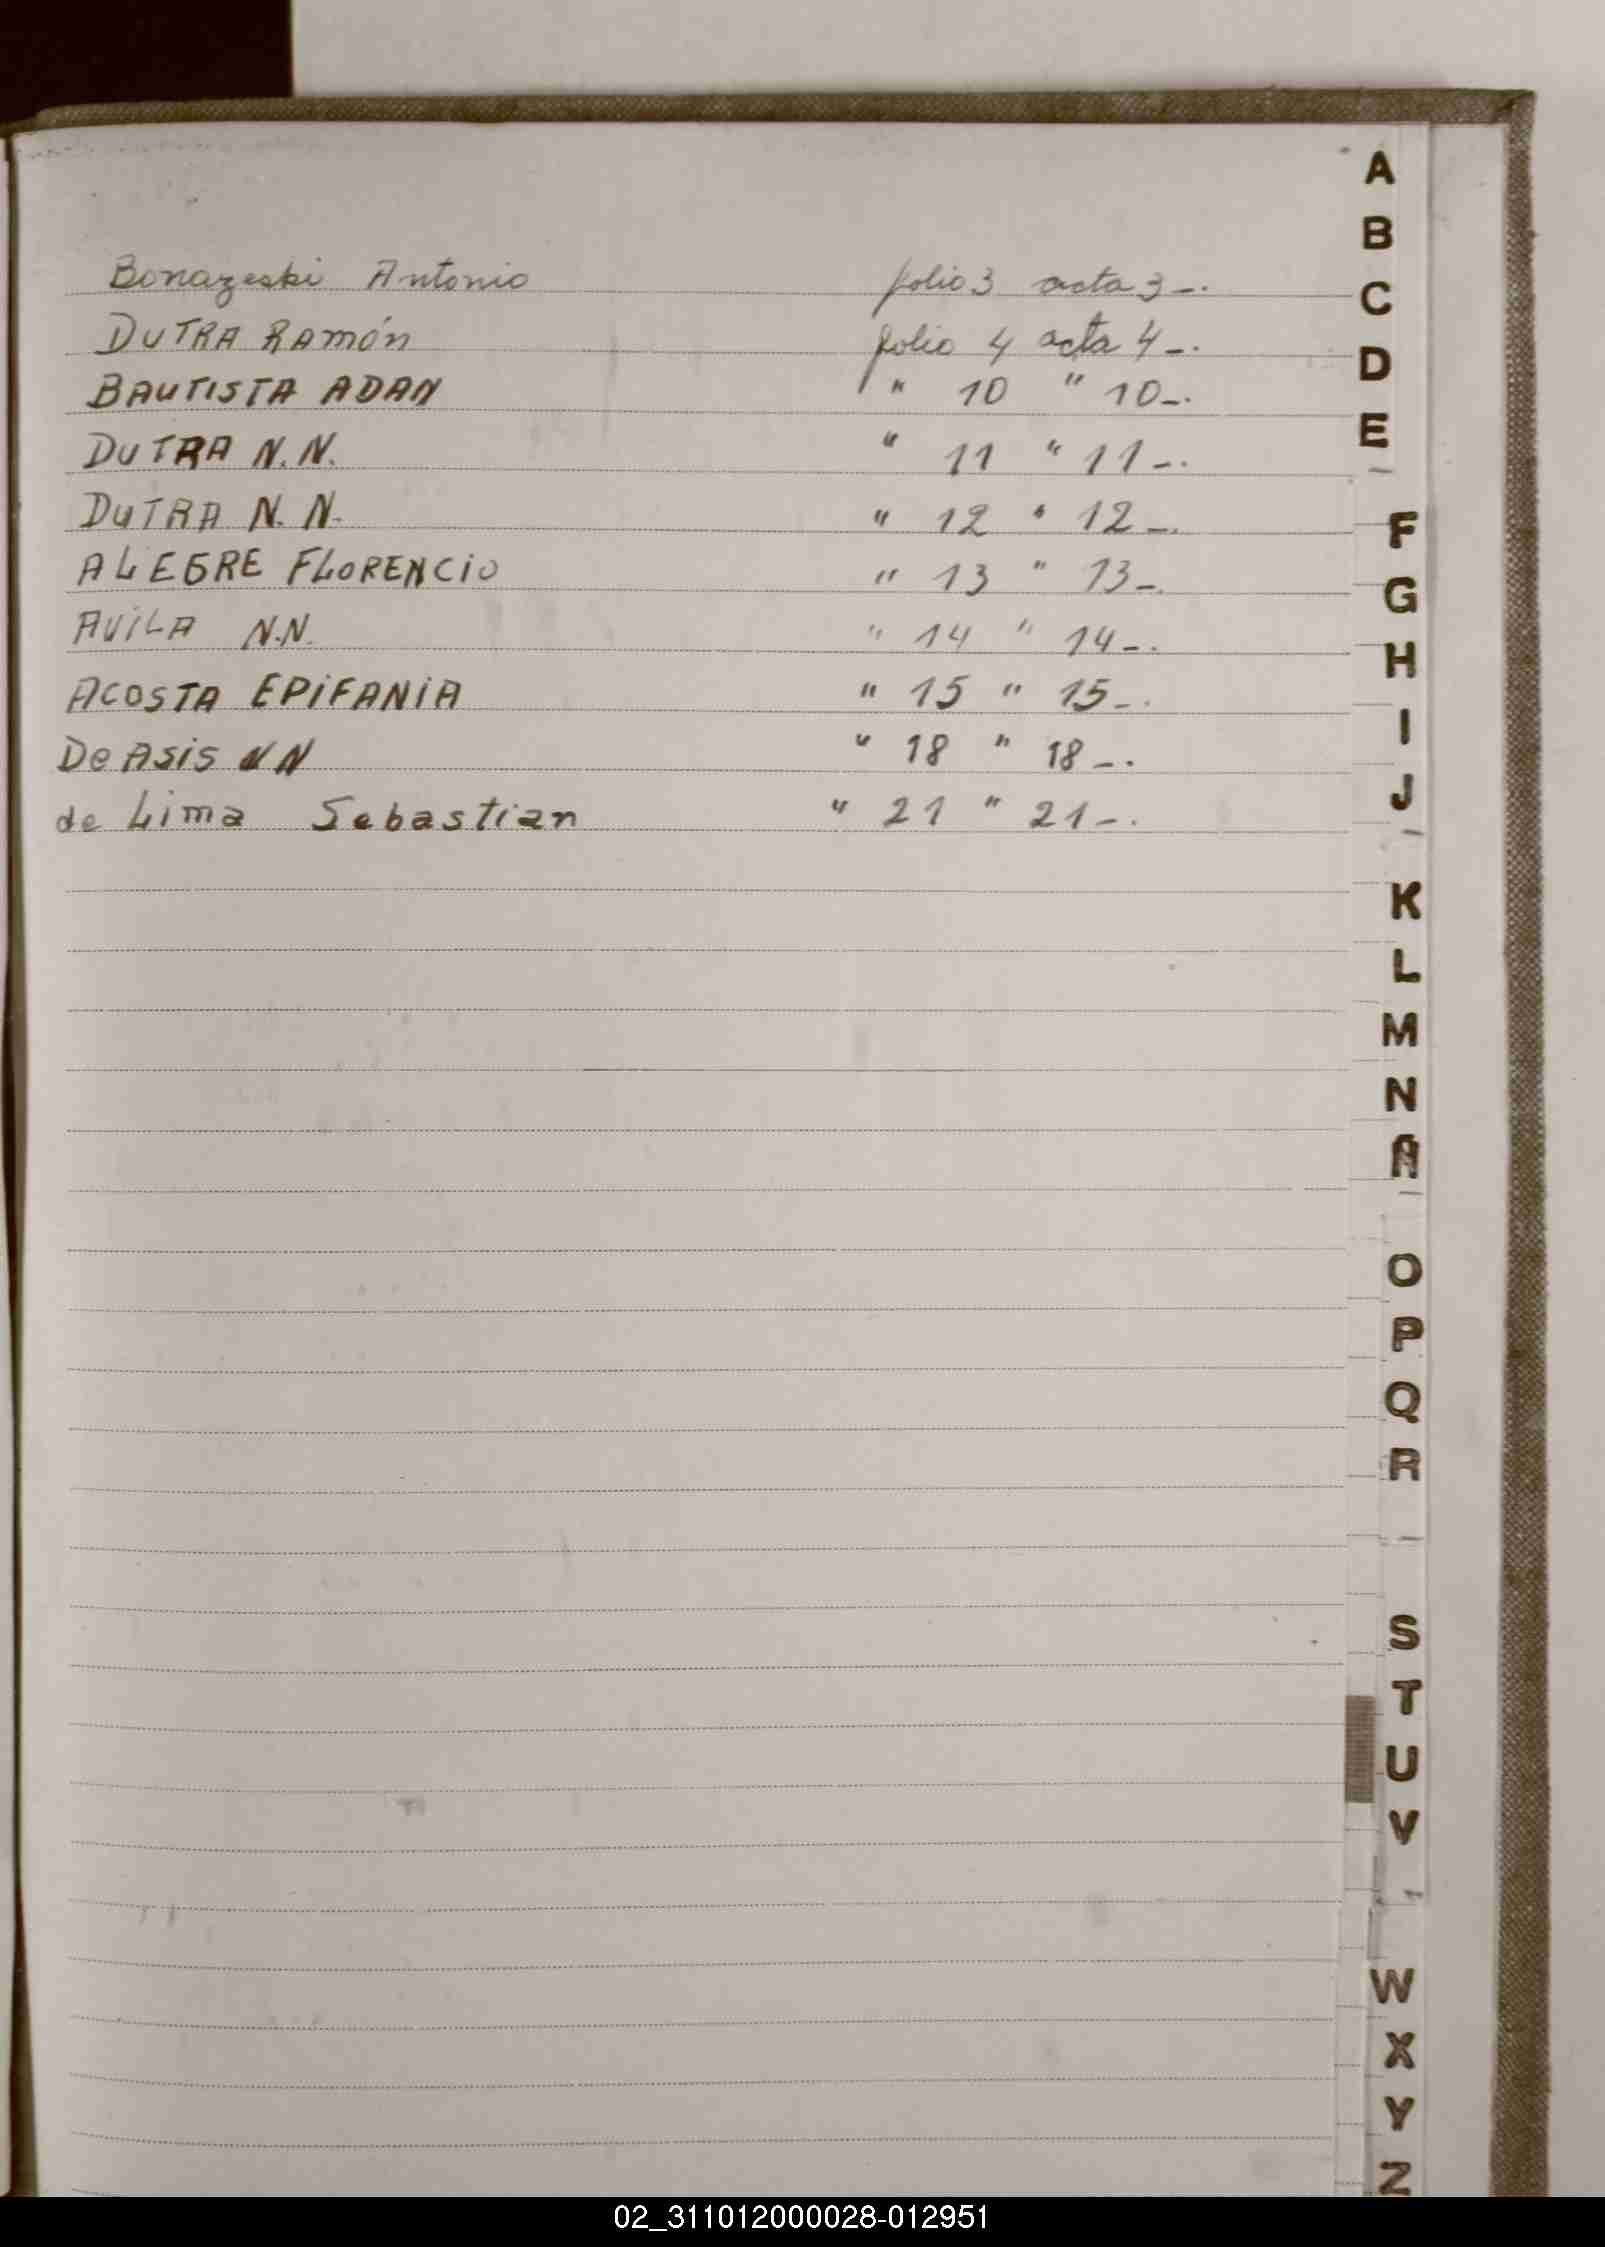 Bonazeski Antonio folio 3 acta 3-.
DUTRA RAMÓN folio 4 acta 4-.
BAUTISTA ADAN " 10 " 10-.
DUTRA N.N. " 11 " 11-.
DUTRA N.N. " 12 " 12-.
ALEGRE FLORENCIO " 13 " 13-.
AVILA N.N. " 14 " 14-.
ACOSTA EPIFANIA " 15 " 15-.
De Asis NN " 18 " 18-.
de Lima Sebastian " 21 " 21-.
A
B
C
D
E
F
G
H
I
J
K
L
M
N
Ñ
O
P
Q
R
S
T
U
V
W
X
Y
Z
02_311012000028-012951